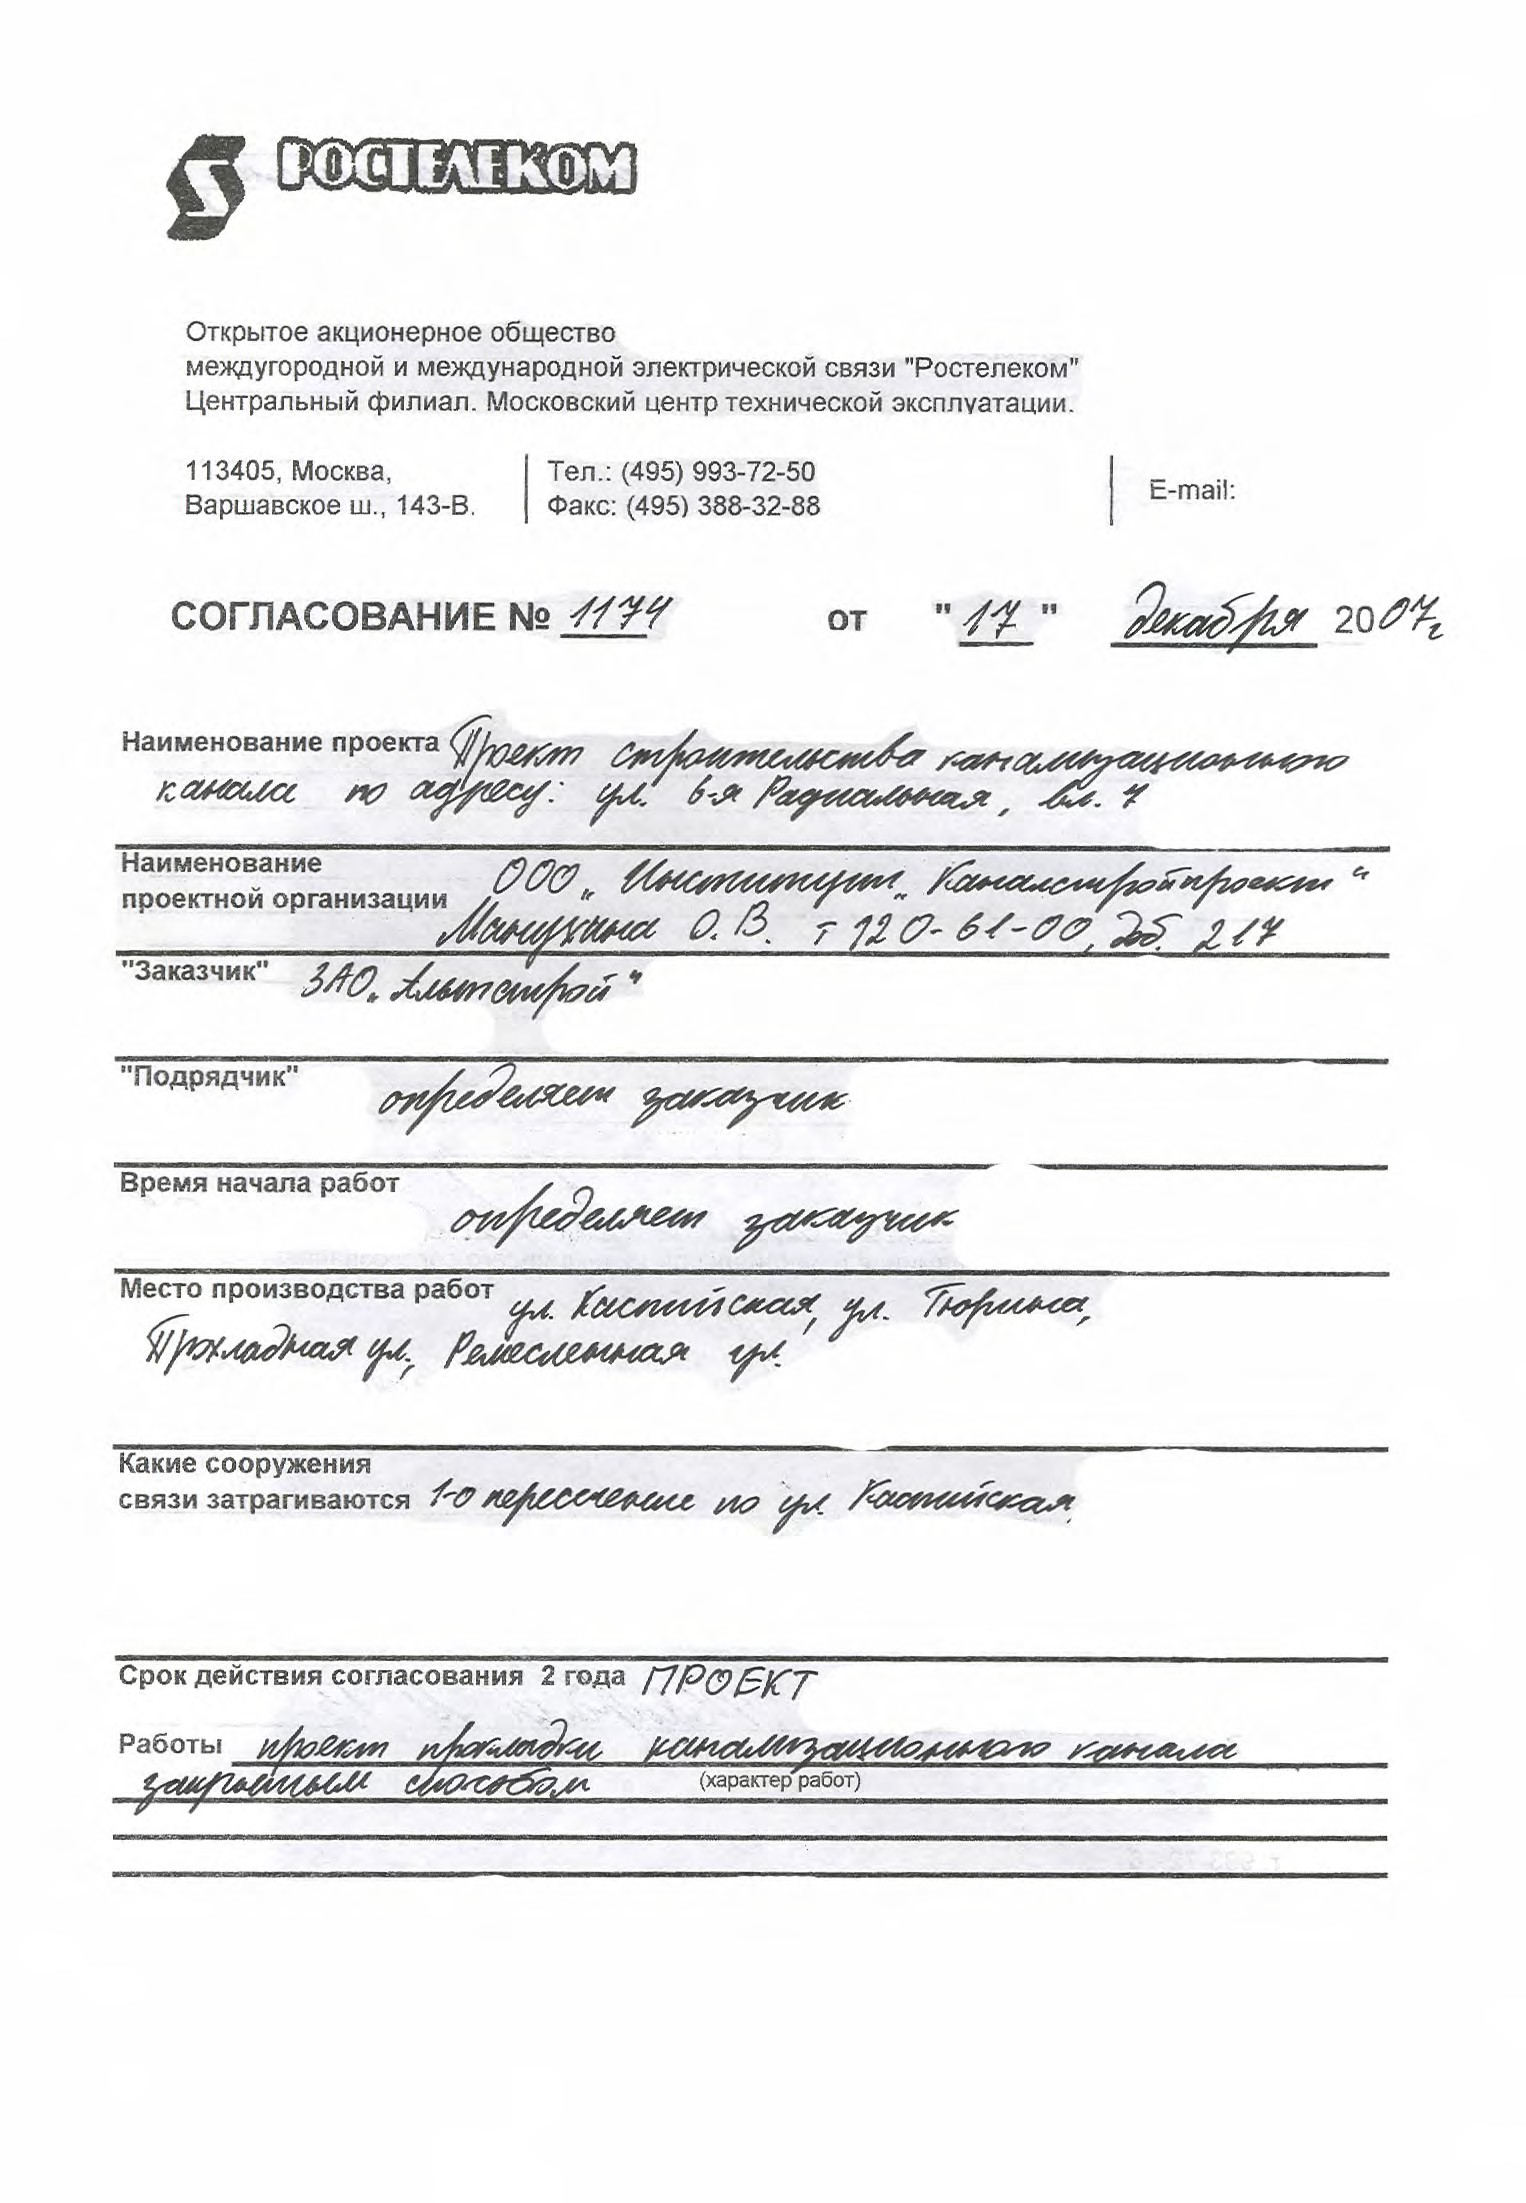 РОСТЕЛЕКОМ
Открытое акционерное общество
междугородной и международной электрической связи "Ростелеком"
Центральный филиал. Московский центр технической эксплуатации.
113405, Москва,
Варшавское ш., 143-В.
Тел.: (495) 993-72-50
Факс: (495) 388-32-88
E-mail:
СОГЛАСОВАНИЕ № 1174 от "17" декабря 2007г
Наименование проекта Проект строительства канализационного
канала по адресу: ул. 6-я Радиальная, вл. 7
Наименование
проектной организации ООО „Институт „Каналстройпроект"
Манухина О.В. т 120-61-00, доб. 217
"Заказчик" ЗАО „Альтстрой"
"Подрядчик" определяет заказчик
Время начала работ определяет заказчик
Место производства работ ул. Каспийская, ул. Тюрина,
Прохладная ул., Ремесленная ул.
Какие сооружения
связи затрагиваются 1-о пересечение по ул. Каспийская.
Срок действия согласования 2 года ПРОЕКТ
Работы проект прокладки канализационного канала
закрытым способом (характер работ)